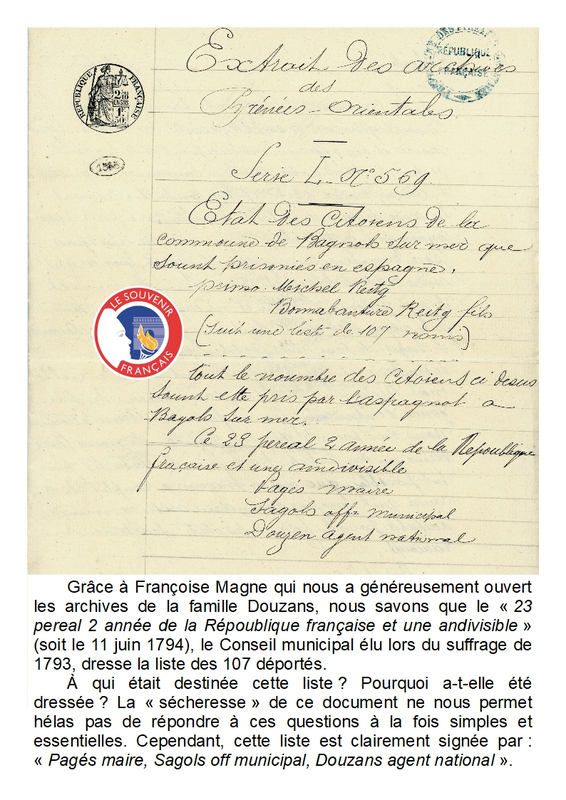 Extrait des archives
des
Pyrénées-Orientales
RÉPUBLIQUE
FRANÇAISE
RÉPUBLIQUE FRANÇAISE
Serie L. N° 569
Etat des Citoiens de la
commoune de Bagnols sur mer que
sount prisoniés en espagne.
primo. Meichel Reitg
Bonnabanture Reitg fils
(suit une liste de 107 noms)
LE SOUVENIR
FRANÇAIS
tout le noumbre des Citoiens ci desus
sount ette pris par l'aspagnot a
Bayols sur mer.
Ce 23 pereal 2 année de la Republique
fraçaise et une andivisible
Pagés maire
Sagols off. municipal
Douzen agent national
Grâce à Françoise Magne qui nous a généreusement ouvert
les archives de la famille Douzans, nous savons que le « 23
pereal 2 année de la Répoublique française et une andivisible »
(soit le 11 juin 1794), le Conseil municipal élu lors du suffrage de
1793, dresse la liste des 107 déportés.
À qui était destinée cette liste ? Pourquoi a-t-elle été
dressée ? La « sécheresse » de ce document ne nous permet
hélas pas de répondre à ces questions à la fois simples et
essentielles. Cependant, cette liste est clairement signée par :
« Pagés maire, Sagols off municipal, Douzans agent national ».